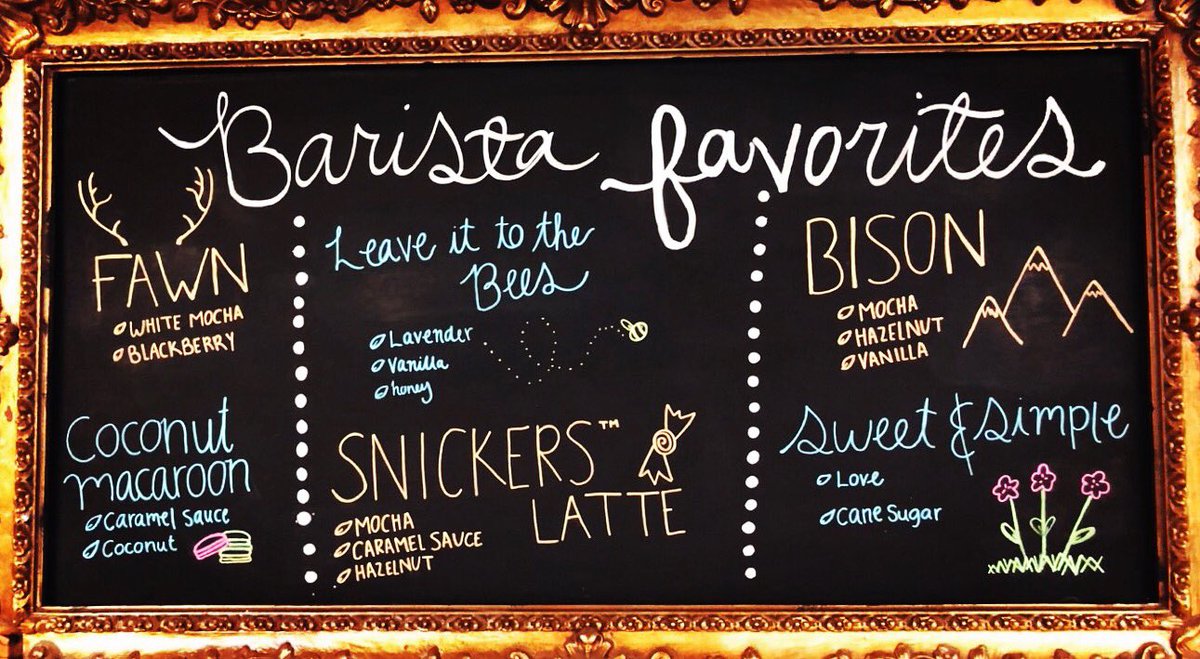 Barista favorites
FAWN
WHITE MOCHA
BLACKBERRY
Coconut
macaroon
Caramel Sauce
Coconut
Leave it to the
Bees
Lavender
Vanilla
honey
SNICKERS™
LATTE
MOCHA
CARAMEL SAUCE
HAZELNUT
BISON
MOCHA
HAZELNUT
VANILLA
Sweet & Simple
Love
Cane Sugar